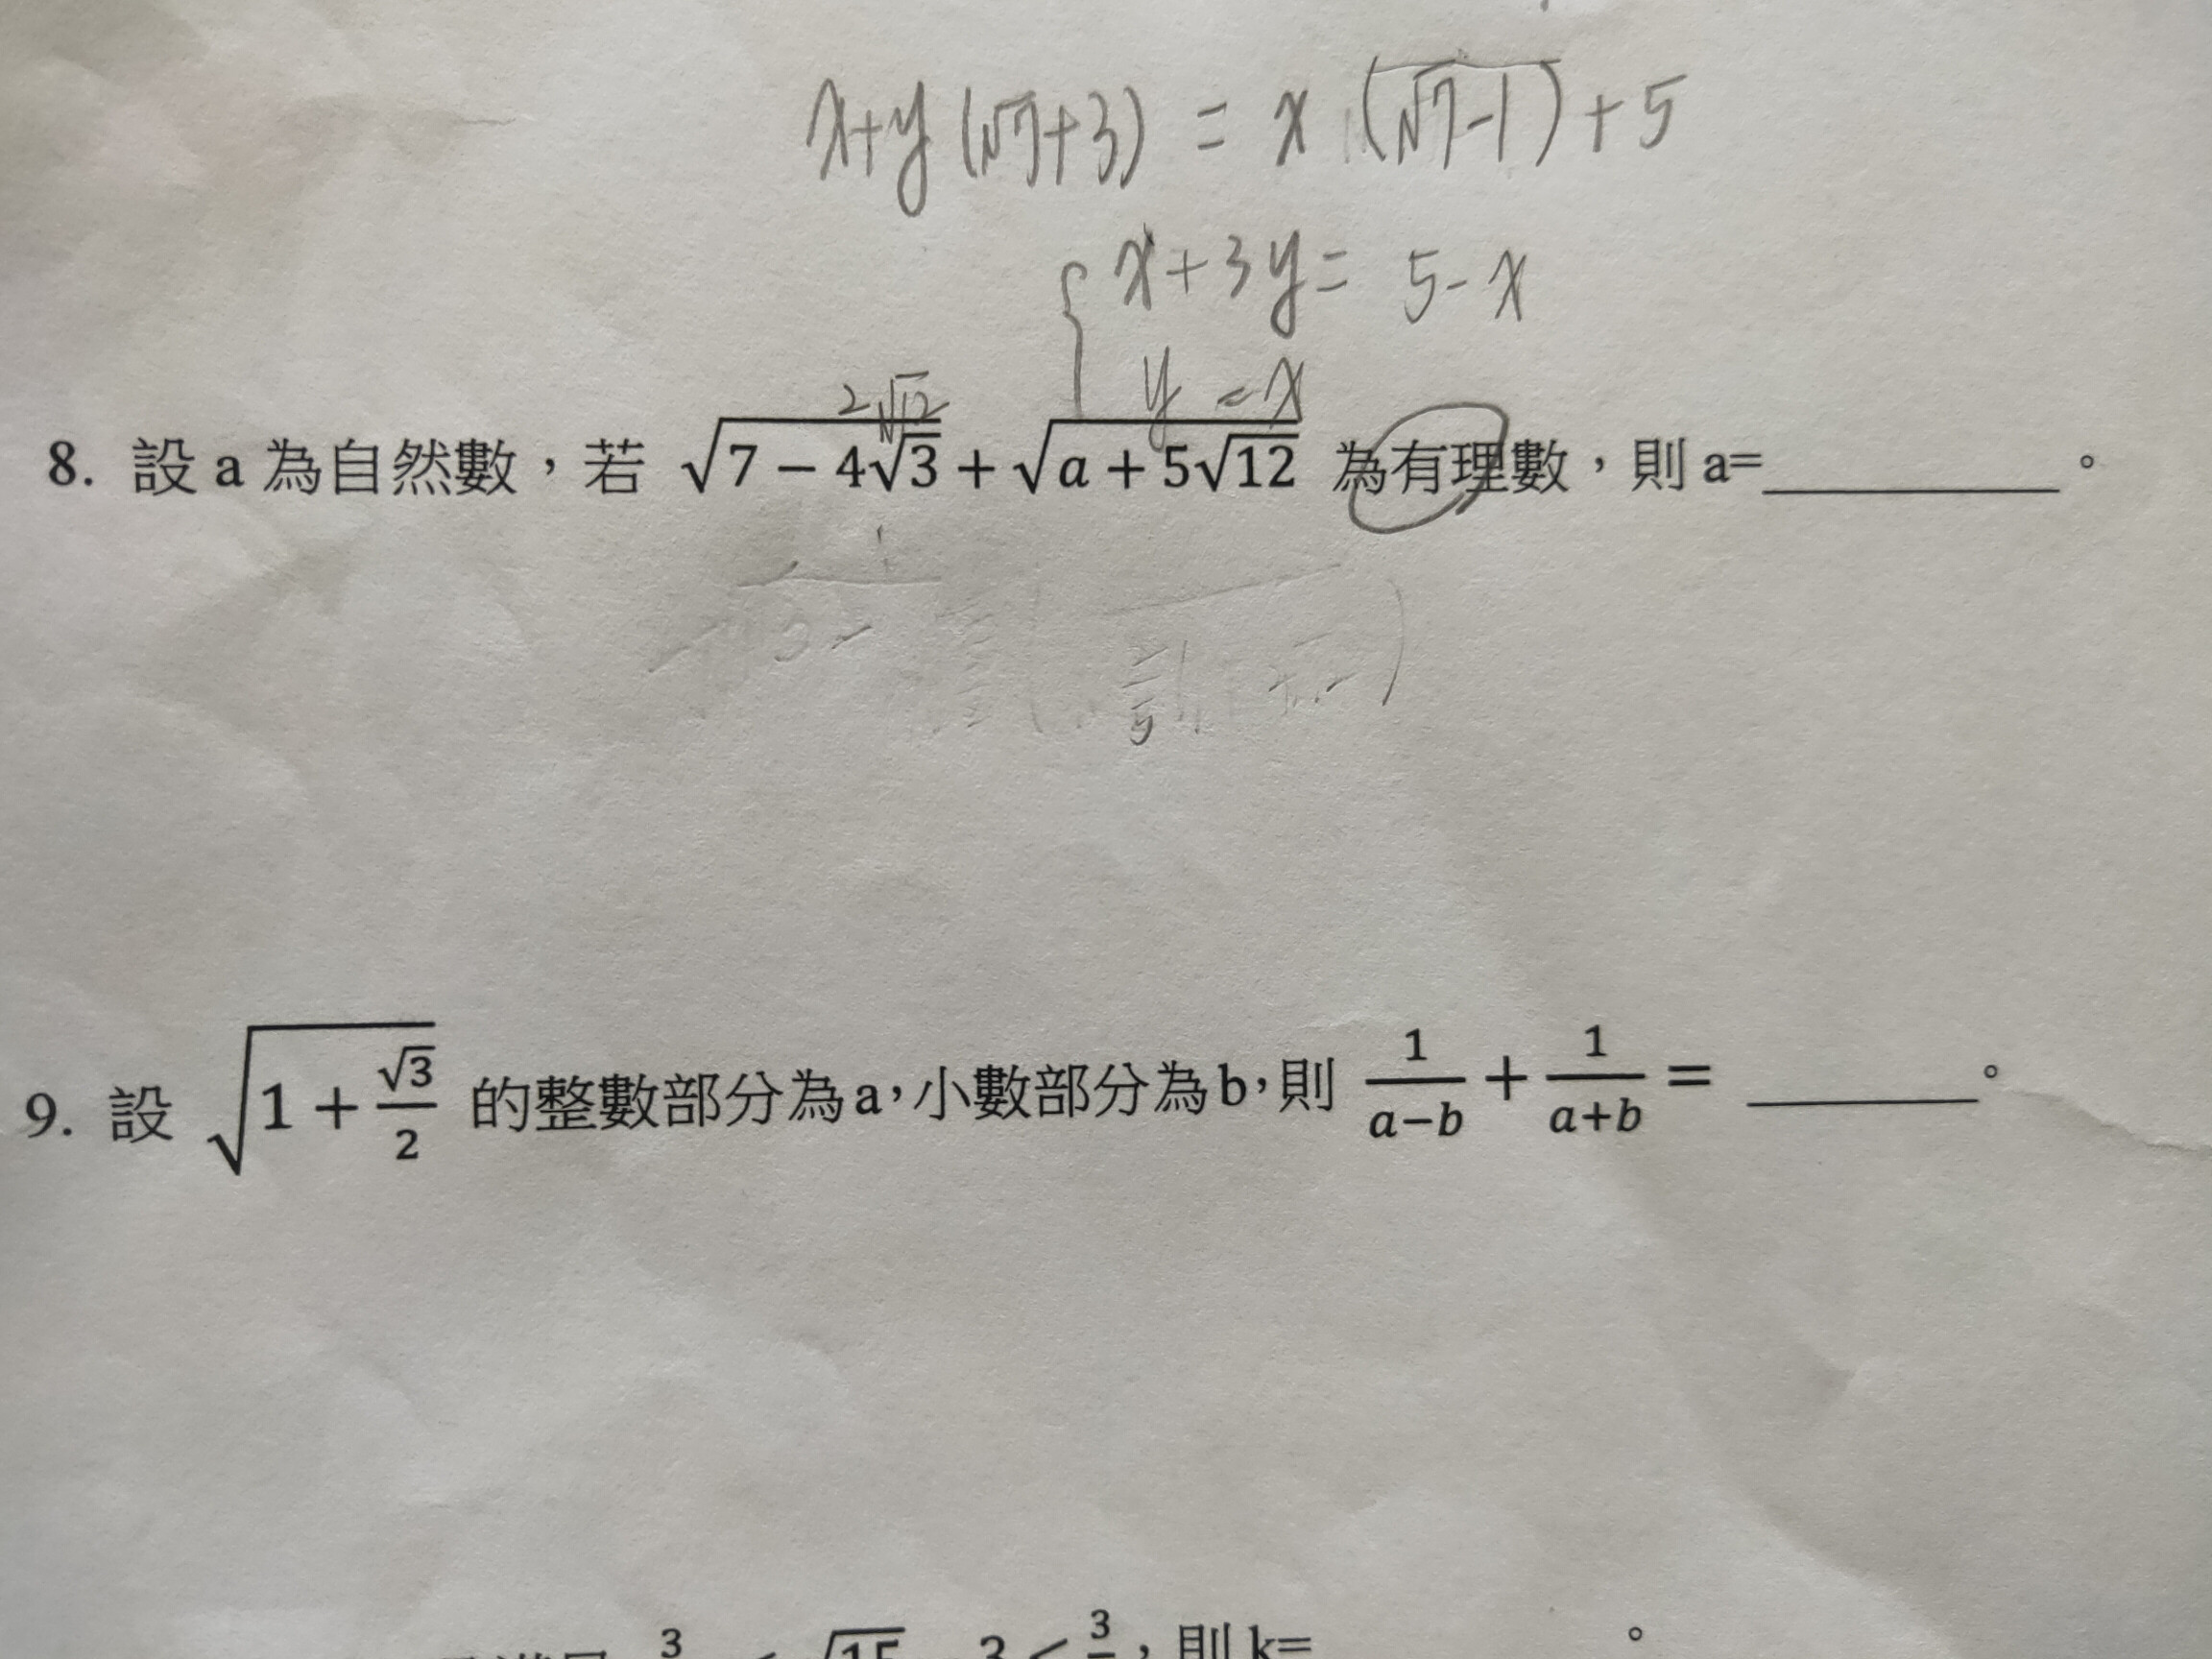 x+y(√7+3) = x(√7-1)+5
{ x+3y= 5-x
y = x
2√12
8. 設 a 為自然數，若 √(7 − 4√3) + √(a + 5√12) 為有理數，則 a=________。
9. 設 √(1 + √3/2) 的整數部分為a，小數部分為b，則 1/(a−b) + 1/(a+b) = ______。
√15 3 < 3 ，則 k= 。